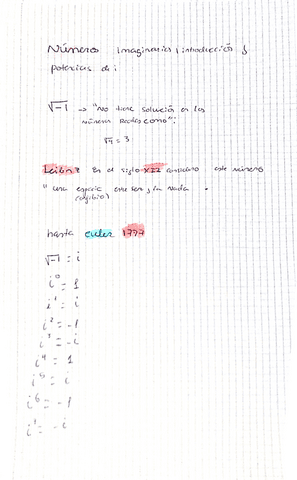 Números Imaginarios, introducción y
potencias de i
√-1 → "no tiene solución en los
números Reales como":
√9 = 3
Leibniz En el siglo XII considero este número
" una especie entre ser y la nada
(anfibio)
hasta euler 1777
√-1 = i
i⁰ = 1
i¹ = i
i² = -1
i³ = -i
i⁴ = 1
i⁵ = i
i⁶ = -1
i⁷ = -i